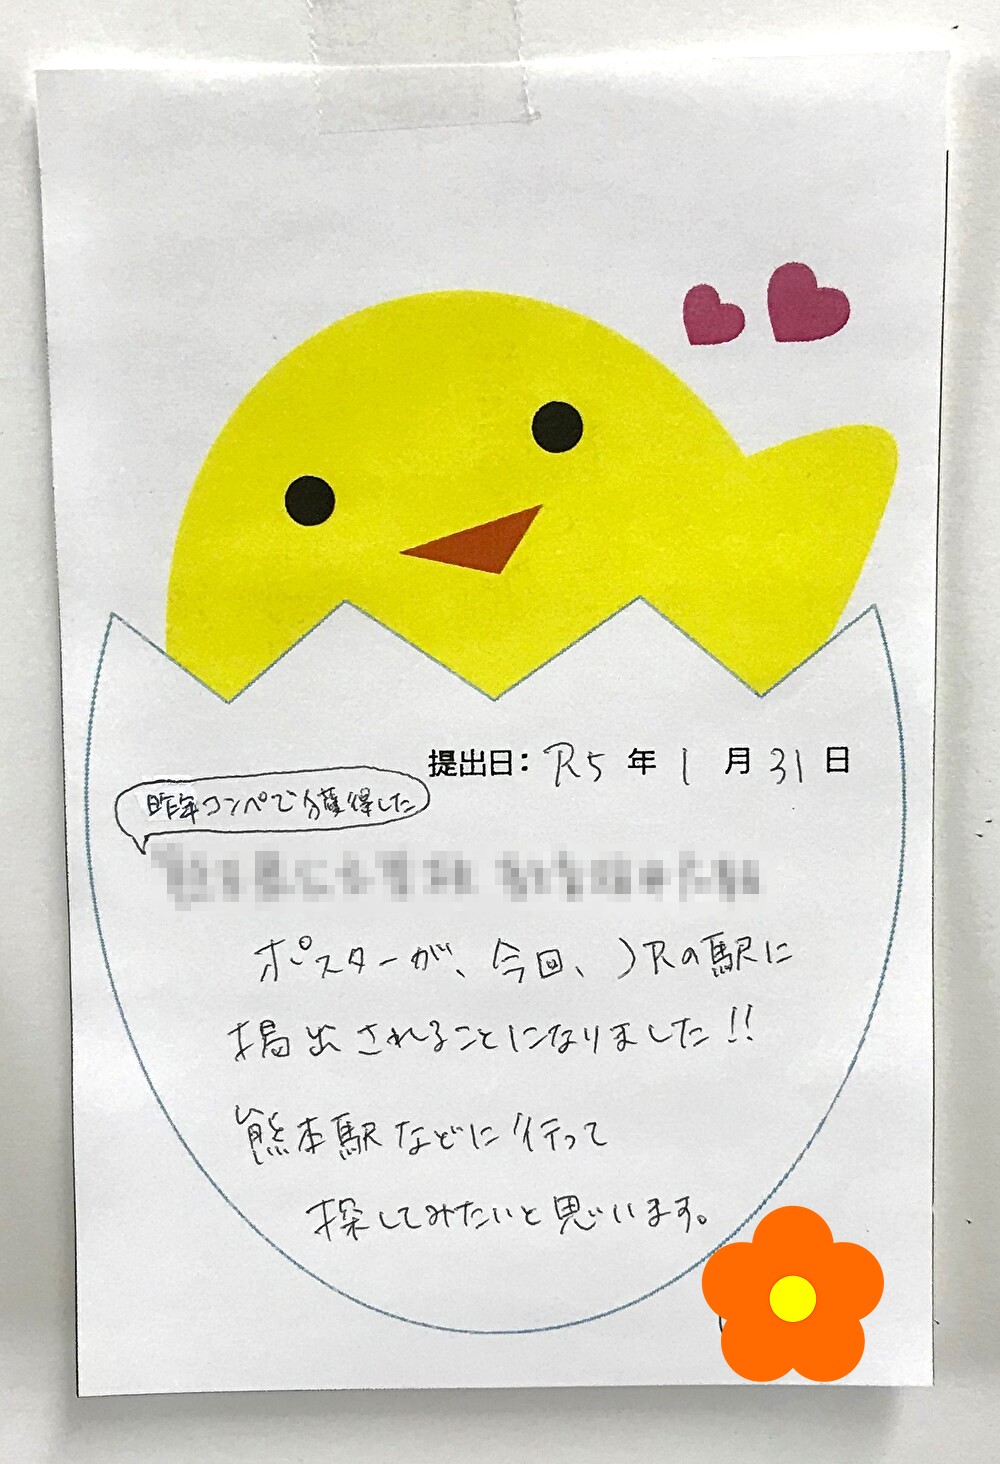 提出日：R5年1月31日
昨年コンペで獲得した
ポスターが、今回、JRの駅に
掲出されることになりました!!
熊本駅などに行って
探してみたいと思います。